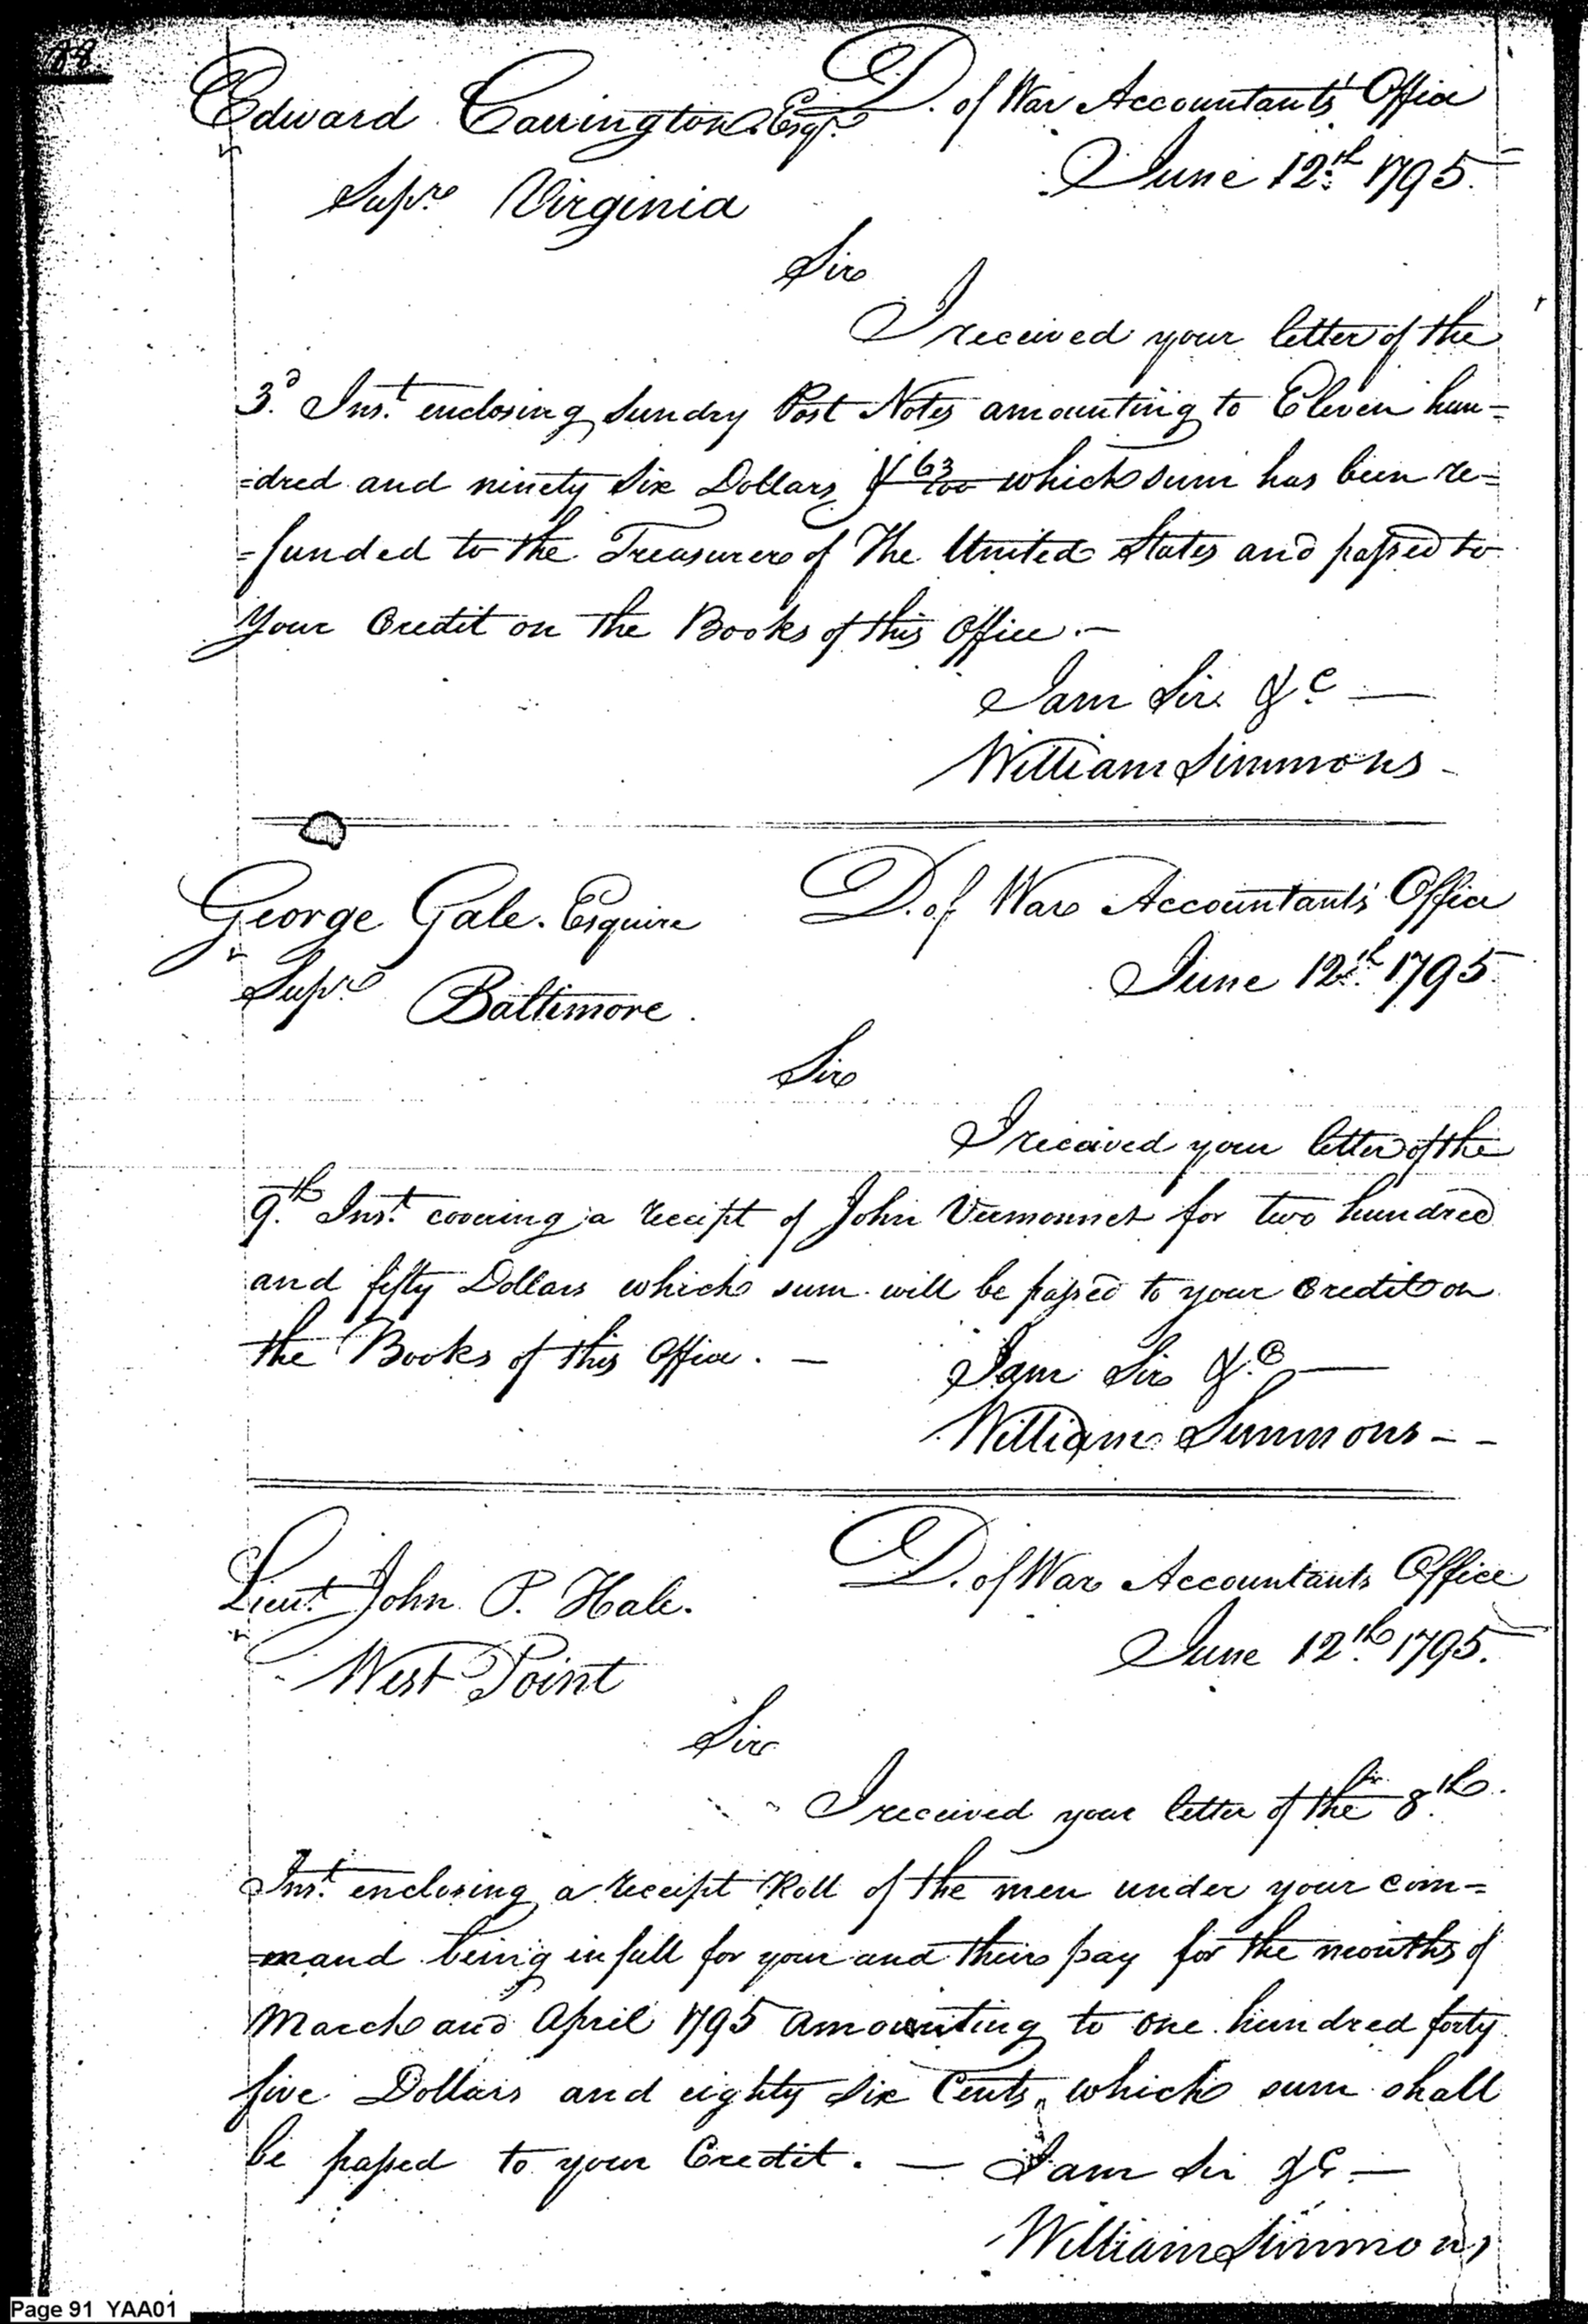 88
Edward Carrington Esqr. D. of War Accountants' Office
June 12th 1795.
Supr. Virginia
Sir
I received your letter of the
3d. Inst. enclosing sundry Post Notes amounting to Eleven hun=
=dred and ninety six Dollars & 63/100 which sum has been re=
=funded to the Treasurer of The United States and passed to
Your Credit on the Books of this Office. —
I am Sir &c —
William Simmons -
George Gale. Esquire D. of War Accountants' Office
June 12th 1795.
Supr. Baltimore.
Sir
I received your letter of the
9th. Inst. covering a receipt of John Vermonnet for two hundred
and fifty Dollars which sum will be passed to your Credit on
the Books of this Office. —
I am Sir &c —
William Simmons - -
Lieut. John P. Hale. D. of War Accountants Office
June 12th 1795.
West Point
Sir
I received your letter of the 8th.
Inst. enclosing a receipt Roll of the men under your com=
=mand being in full for your and their pay for the months of
March and April 1795 amounting to one hundred forty
five Dollars and eighty six Cents, which sum shall
be passed to your Credit. — I am Sir &c —
William Simmons
Page 91 YAA01